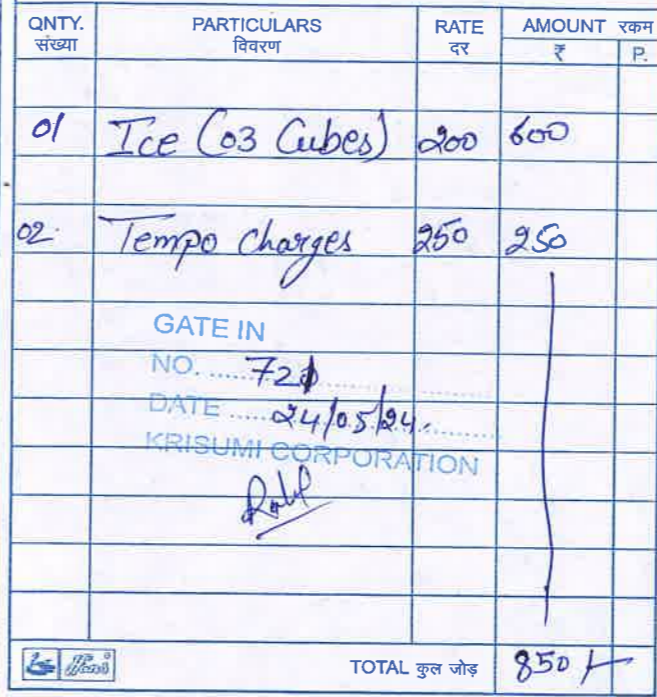 QNTY. PARTICULARS RATE AMOUNT रकम
संख्या विवरण दर ₹ P.
01 Ice (03 Cubes) 200 600
02. Tempo Charges 250 250
GATE IN
NO. ...... 721
DATE ..... 24/05/24.
KRISUMI CORPORATION
TOTAL कुल जोड़ 850/-